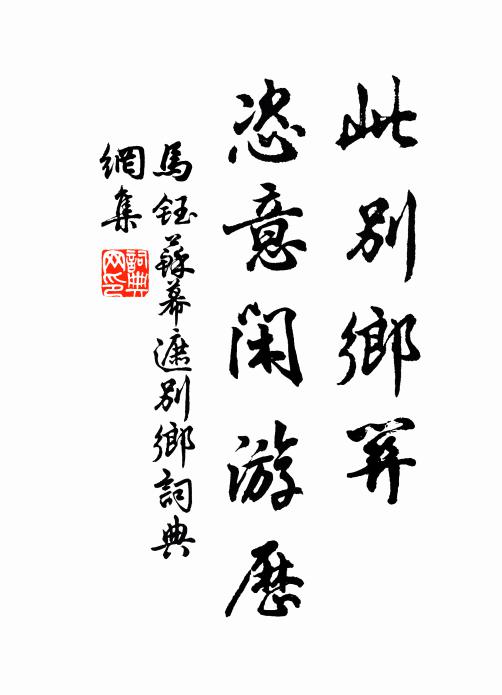 此别鄉關
恣意闲游歷
馬鈺蘇幕遮别鄉詞典
網集
詞典網印